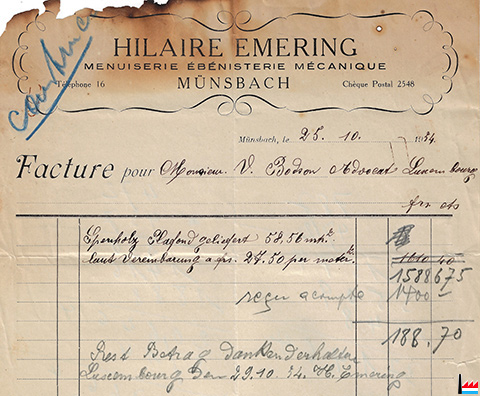 construc
HILAIRE EMERING
MENUISERIE ÉBÉNISTERIE MÉCANIQUE
Téléphone 16 MÜNSBACH Chèque Postal 2548
Münsbach, le 25. 10. 1934
Facture pour Monsieur V. Bodson Advocat Luxembourg
frs cts
Sperrholz Plafond geliefert 58,50 mtr
laut Vereinbarung a frs. 27.50 per meter
1588675
reçu acompte 1400 —
188.70
Rest Betrag dankend erhalten
Luxembourg den 29.10.34 H. Emering